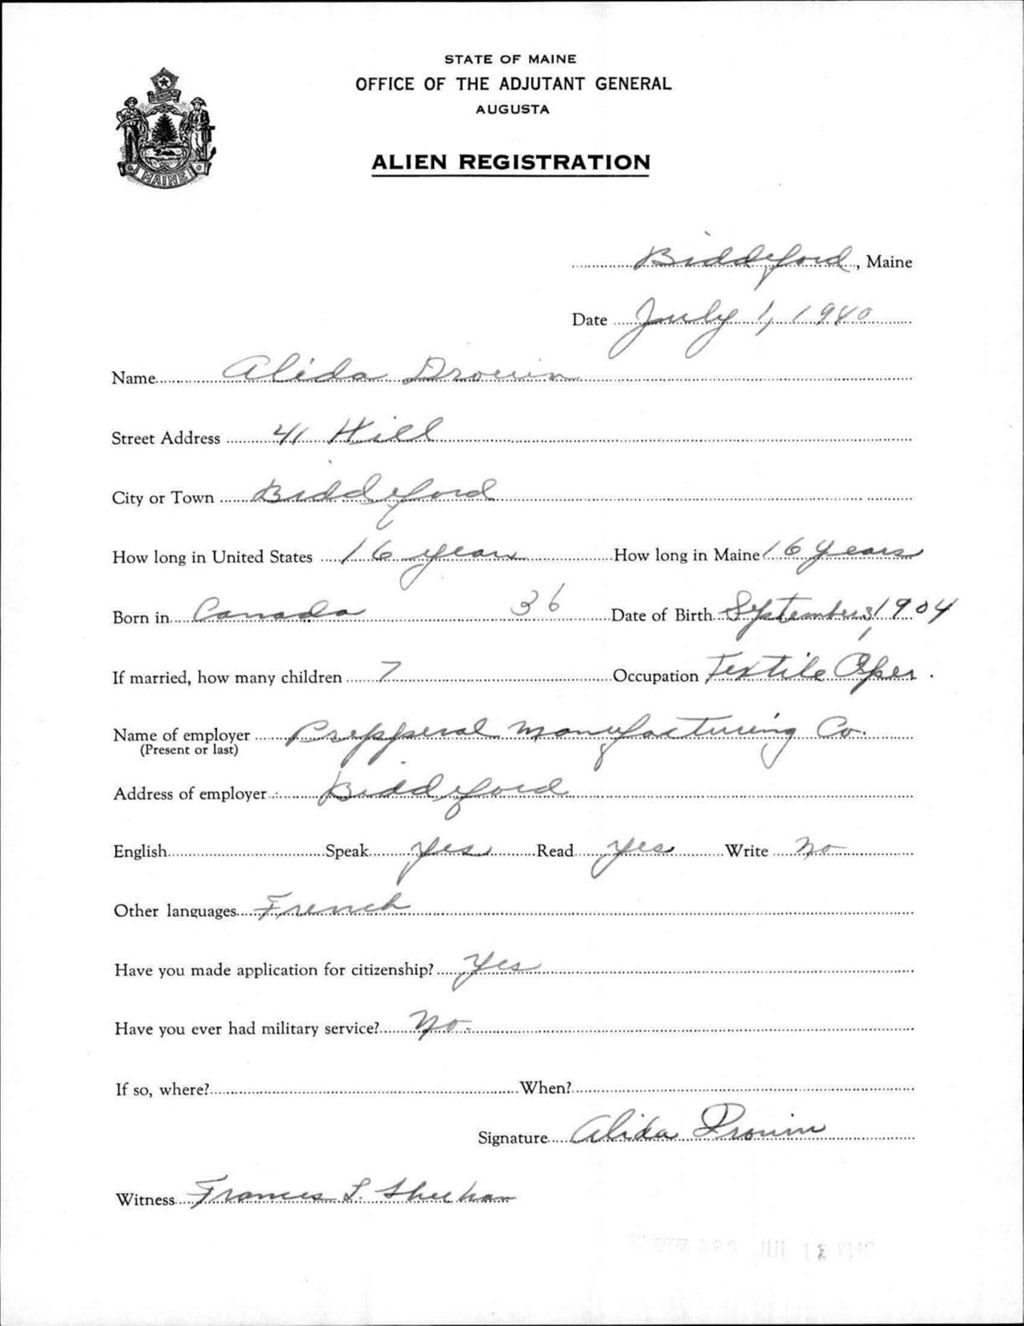 STATE OF MAINE
OFFICE OF THE ADJUTANT GENERAL
AUGUSTA
ALIEN REGISTRATION
MAINE
Biddeford, Maine
Date July 1, 1940
Name Alida Drouin
Street Address 41 Hill
City or Town Biddeford
How long in United States 16 years How long in Maine 16 years
Born in Canada 36 Date of Birth September 3, 1904
If married, how many children 7 Occupation Textile Oper.
Name of employer Pepperal Manufacturing Co.
(Present or last)
Address of employer Biddeford
English Speak Yes Read Yes Write No
Other languages French
Have you made application for citizenship? Yes
Have you ever had military service? No.
If so, where? When?
Signature Alida Drouin
Witness Frances L. Sheehan
JUL 12 1940